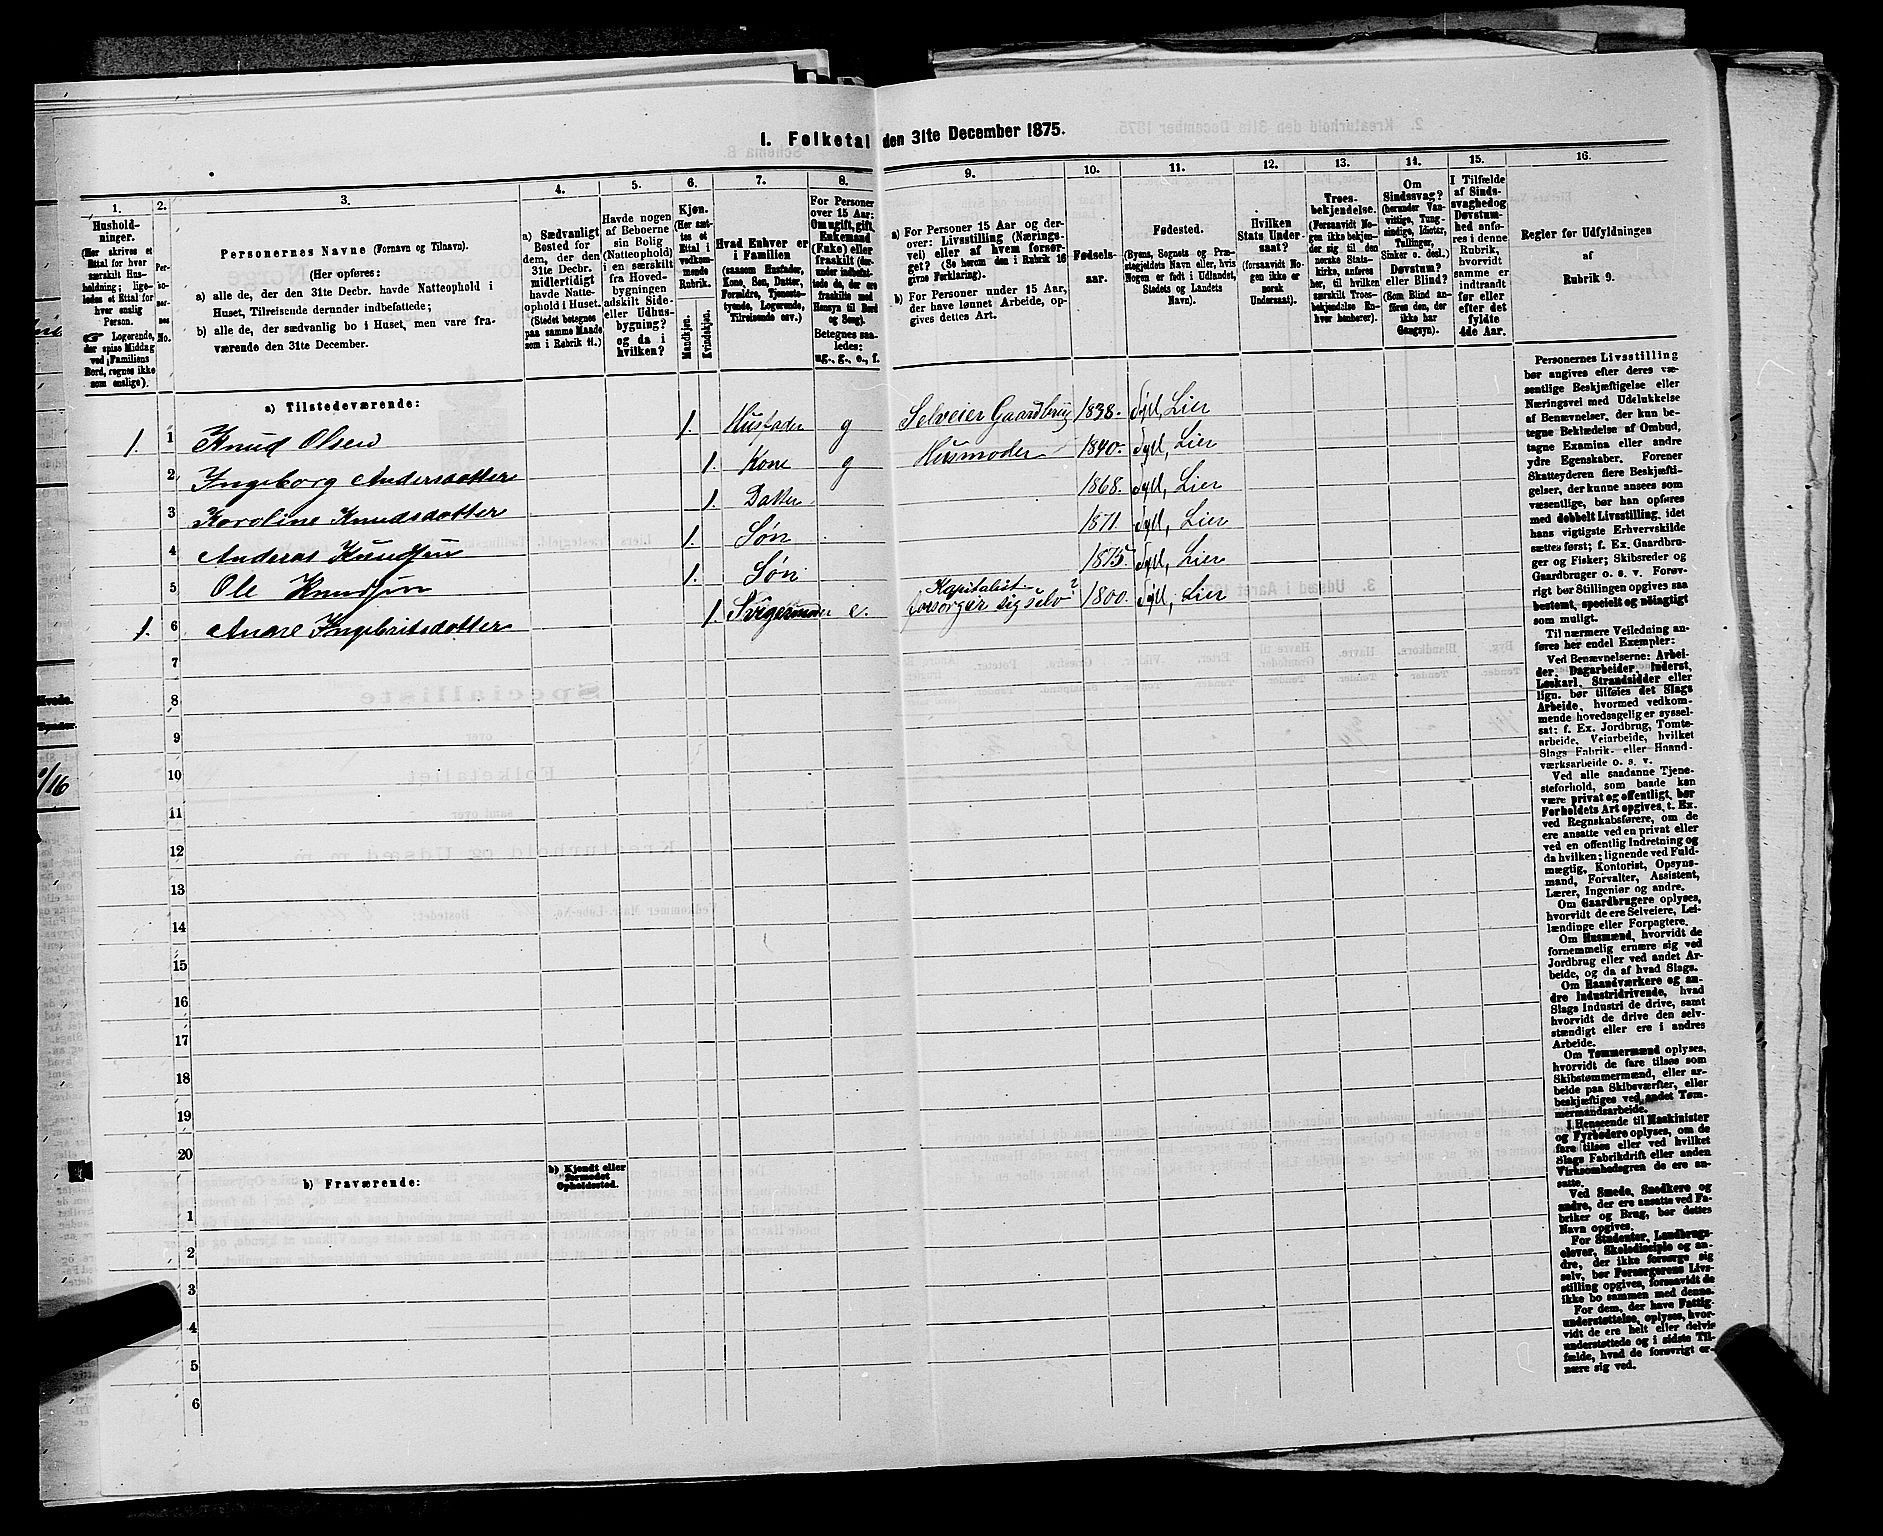 1. Folketal den 31te December 1875.
1. 2. 3. 4. 5. 6. 7. 8. 9. 10. 11. 12. 13. 14. 15. 16.
Hushold-
ninger.
(Her skrives et
Ettal for hver
særskilt Hus-
holdning; lige-
ledes et Ettal for
hver enslig
Person.
Logerende,
der spise Middag
ved Familiens
Bord, regnes ikke
som enslige).
Per-
so-
ner-
nes
No.
Personernes Navne (Fornavn og Tilnavn).
(Her opføres:
a) alle de, der den 31te Decbr. havde Natteophold i
Huset, Tilreisende derunder indbefattede;
b) alle de, der sædvanlig bo i Huset, men vare fra-
værende den 31te December.
a) Sædvanligt
Bosted for
dem, der den
31te Decbr.
midlertidigt
havde Natte-
ophold i Huset.
(Stedet betegnes
paa samme Maade
som i Rubrik 11.)
Havde nogen
af Beboerne
sin Bolig
(Natteophold)
i en særskilt
fra Hoved-
bygningen
adskilt Side-
eller Udhus-
bygning?
og da i
hvilken?
Kjøn.
(Her sæt-
tes et
Ettal i
vedkom-
mende
Rubrik.
Mandkjøn.
Kvindekjøn.
Hvad Enhver er
i Familien
(saasom Husfader,
Kone, Søn, Datter,
Forældre, Tjeneste-
tyende, Logerende,
Tilreisende osv.)
For Personer
over 15 Aar:
Om ugift, gift,
Enkemand
(Enke) eller
fraskilt (der-
under indbefat-
tede de, der ere
fraskilte med
Hensyn til Bord
og Seng).
Betegnes saa-
ledes:
ug., g., e., f.
a) For Personer 15 Aar og der-
over: Livsstilling (Nærings-
vei) eller af hvem forsør-
get? (Se herom den i Rubrik 16
givne Forklaring).
b) For Personer under 15 Aar,
der have lønnet Arbeide, op-
gives dettes Art.
Fødsels-
aar.
Fødested.
(Byens, Sognets og Præ-
stegjeldets Navn eller, hvis
Nogen er født i Udlandet,
Stedets og Landets
Navn).
Hvilken
Stats Under-
saat?
(forsaavidt No-
gen ikke er
norsk
Undersaat).
Troes-
bekjendelse.
(Forsaavidt No-
gen ikke bekjen-
der sig til den
norske Stats-
kirke, anføres
her, til hvilken
særskilt Troes-
bekjendelse En-
hver henhører).
Om
Sindssvag?
(herunder Van-
vittige, Tung-
sindige, Idioter,
Tullinger,
Sinker o. desl.)
Døvstum?
eller Blind?
(Som Blind an-
føres den, der
ikke har
Gangsyn).
I Tilfælde
af Sinds-
svaghed og
Døvstum-
hed anfø-
res i denne
Rubrik,
hvorvidt
samme er
indtraadt
før eller
efter det
fyldte
4de Aar.
Regler for Udfyldningen
af
Rubrik 9.
a) Tilstedeværende:
1. 1 Knud Olsen 1. Husfader g Selveier Gaardbrug 1838. Syll, Lier
2 Ingeborg Andersdotter 1. Kone g Husmoder 1840. Syll, Lier
3 Karoline Knudsdotter 1. Datter 1868. Syll, Lier
4 Andreas Knudsen 1. Søn 1871. Syll, Lier
5 Ole Knudsen 1. Søn 1875. Syll, Lier
Kapitalist
1. 6 Anne Ingebritsdotter 1. e. forsørger sig selv? 1800. Syll, Lier
7
8
9
10
11
12
13
14
15
16
17
18
19
20
b) Fraværende:
b) Kjendt eller
formodet
Opholdssted.
1
2
3
4
5
6
Personernes Livsstilling
bør angives efter deres væ-
sentlige Beskjæftigelse eller
Næringsvei med Udelukkelse
af Benævnelser, der kun be-
tegne Beklædelse af Ombud,
tagne Examina eller andre
ydre Egenskaber. Forener
Skatteyderen flere Beskjæfti-
gelser, der kunne ansees som
væsentlige, bør han opføres
med dobbelt Livsstilling, idet
hans vigtigste Erhvervskilde
sættes først; f. Ex. Gaardbru-
ger og Fisker; Skibsreder og
Gaardbruger o. s. v. Forøv-
rigt bør Stillingen opgives saa
bestemt, specielt og nøiagtigt
som muligt.
Til nærmere Veiledning an-
føres her endel Exempler:
Ved Benævnelserne: Arbei-
der, Dagarbeider, Inderst,
Løskarl, Strandsidder eller
lign. bør tilføies det Slags
Arbeide, hvormed vedkom-
mende hovedsagelig er syssel-
sat: f. Ex. Jordbrug, Tomte-
arbeide, Veiarbeide, hvilket
Slags Fabrik- eller Haand-
værksarbeide o. s. v.
Ved alle saadanne Tjene-
steforhold, som baade kan
være privat og offentligt, bør
Forholdets Art opgives, t. Ex.
ved Regnskabsførere, om de
ere ansatte ved en privat eller
ved en offentlig Indretning og
da hvilken; lignende ved Fuld-
mægtig, Kontorist, Opsyns-
mand, Forvalter, Assistent,
Lærer, Ingeniør og andre.
Om Gaardbrugere oplyses,
hvorvidt de ere Selveiere, Lei-
lændinge eller Forpagtere.
Om Husmænd, hvorvidt de
fornemmelig ernære sig ved
Jordbrug eller ved andet Ar-
beide, og da af hvad Slags.
Om Haandværkere og an-
dre Industridrivende, hvad
Slags Industri de drive, samt
hvorvidt de drive den selv-
stændigt eller ere i andres
Arbeide.
Om Tømmermænd oplyses,
hvorvidt de fare tilsøs som
Skibstømmermænd, eller ar-
beide paa Skibsværfter, eller
beskjæftiges ved andet Tøm-
mermandsarbeide.
I Henseende til Maskinister
og Fyrbødere oplyses, om de
fare tilsøs eller ved hvilket
Slags Fabrikdrift eller anden
Virksomhedsgren de ere an-
satte.
Ved Smede, Snedkere og
andre, der ere ansatte ved Fa-
briker og Brug, bør dettes
Navn opgives.
For Studenter, Landbrugs-
elever, Skoledisciple og an-
dre, der ikke forsørge sig
selv, bør Forsørgerens Livs-
stilling opgives, forsaavidt de
ikke bo sammen med denne.
For dem, der have Fattig-
understøttelse, oplyses, hvor-
vidt de ere helt eller delvis
understøttede og i sidste Til-
fælde, hvad de forøvrigt er-
nære sig ved.